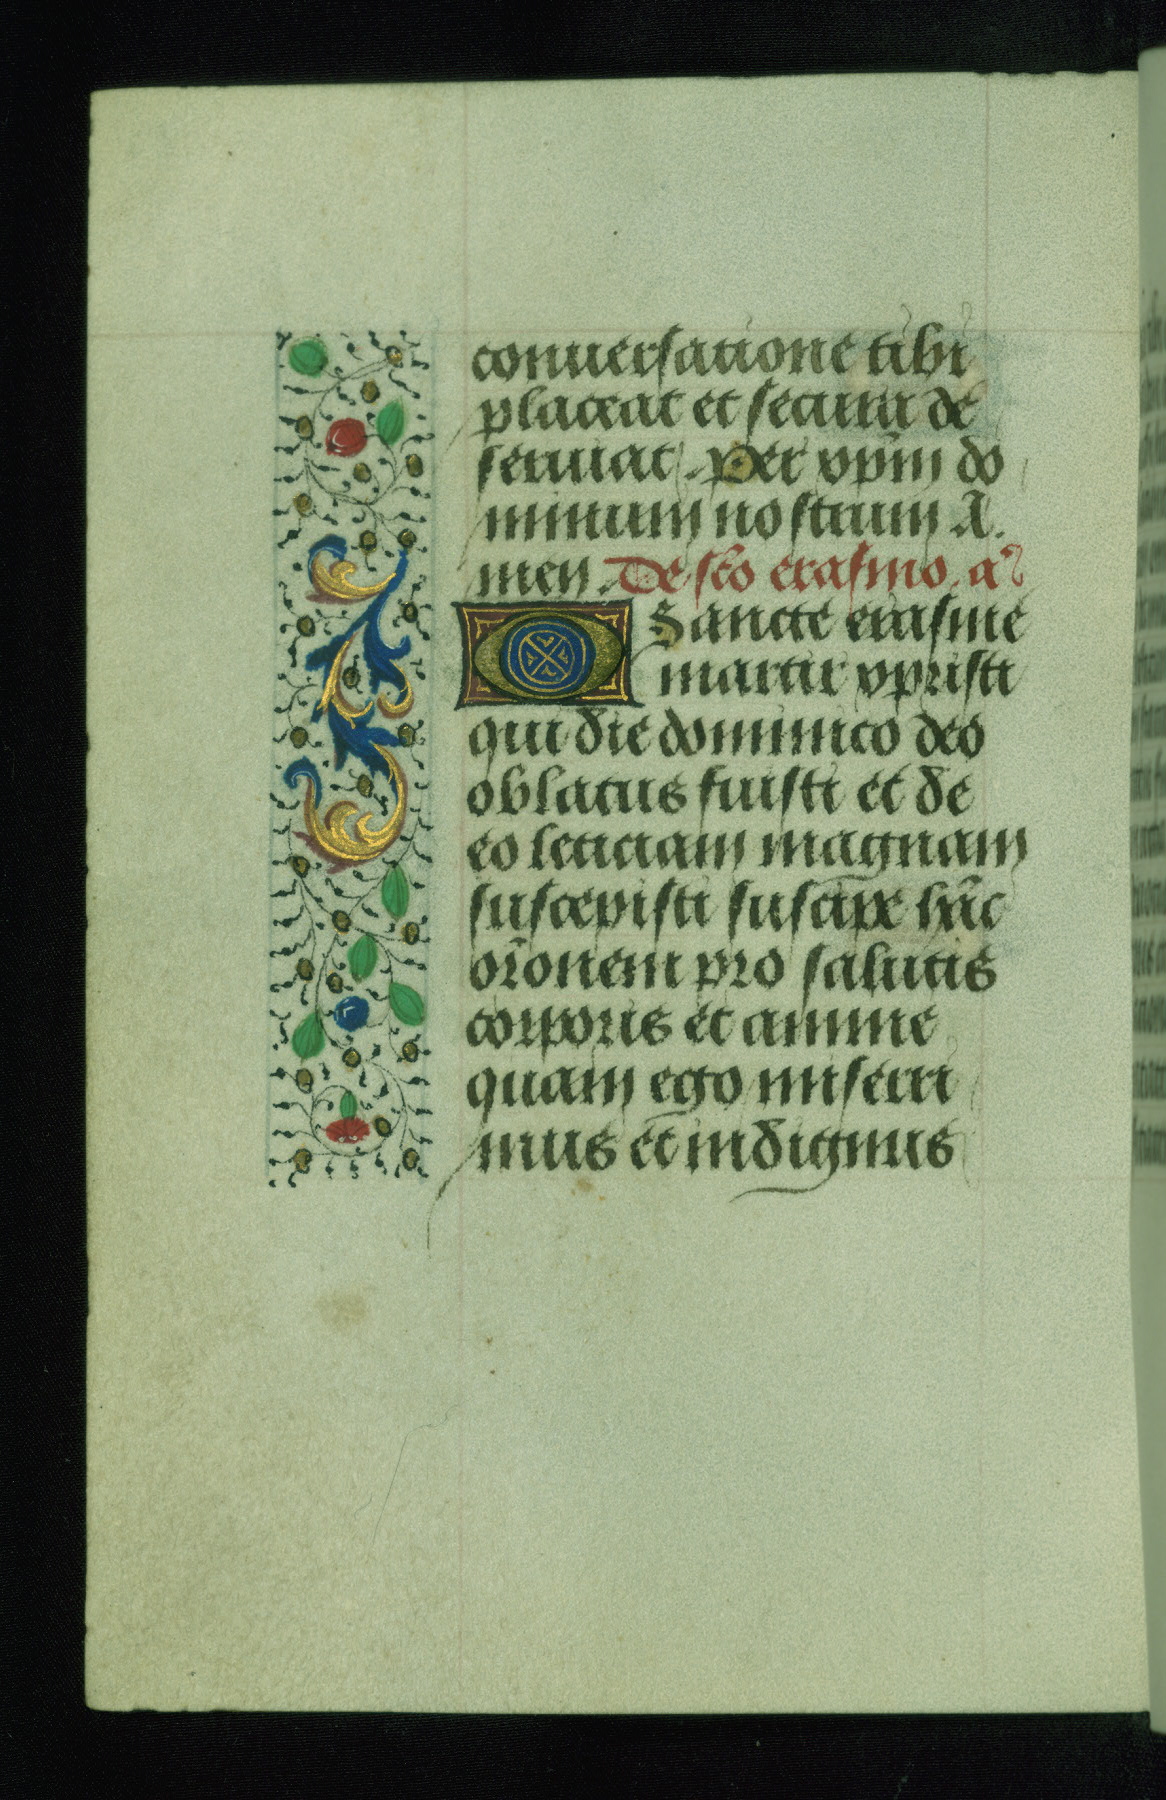 conuersatione tibi
placeat et secura de
seruiat. Per xp̄m do
minum nostrum A.
men. De sc̄o erasmo. añ
O Sancte erasme
martir xp̄risti
qui die dominico deo
oblatus fuisti et de
eo leticiam magnam
suscepisti suscipe hāc
or̄onem pro salutis
corporis et anime
quam ego miserri
mus et indignus